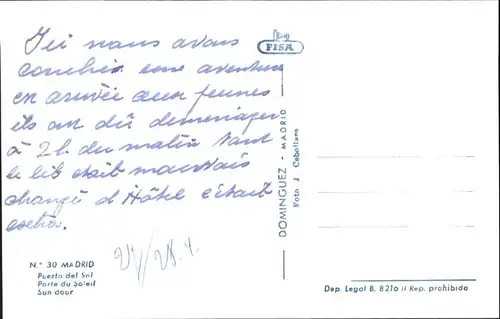 Ici nous avons
couchés une aventure
en arrivée aux jeunes
ils on dû demenager
à 2h. du matin tant
le lit etait mauvais
changé d'Hôtel c'était
FISA
DOMINGUEZ - MADRID
Foto J. Caballero
N.° 30 MADRID
Puerta del Sol
Porte du Soleil
Sun door
Dep. Legal B. 8210 II Rep. prohibida